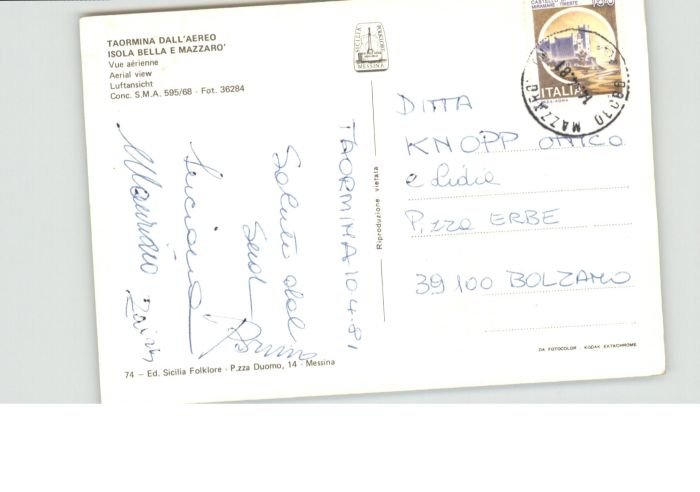 TAORMINA DALL'AEREO
ISOLA BELLA E MAZZARO'
Vue aérienne
Aerial view
Luftansicht
Conc. S.M.A. 595/68 - Fot. 36284
SICILIA FOLKLORE
MESSINA
CASTELLO DI
MIRAMARE TRIESTE
ITALIA
DITTA
KNOPP
e Lidia
P.zza ERBE
39100 BOLZANO
TAORMINA 10.4.81
Saluti dal
Sud
Luciana
Bruno
Maurizio
Riproduzione vietata
DA FOTOCOLOR - KODAK EKTACHROME
74 — Ed. Sicilia Folklore - P.zza Duomo, 14 - Messina